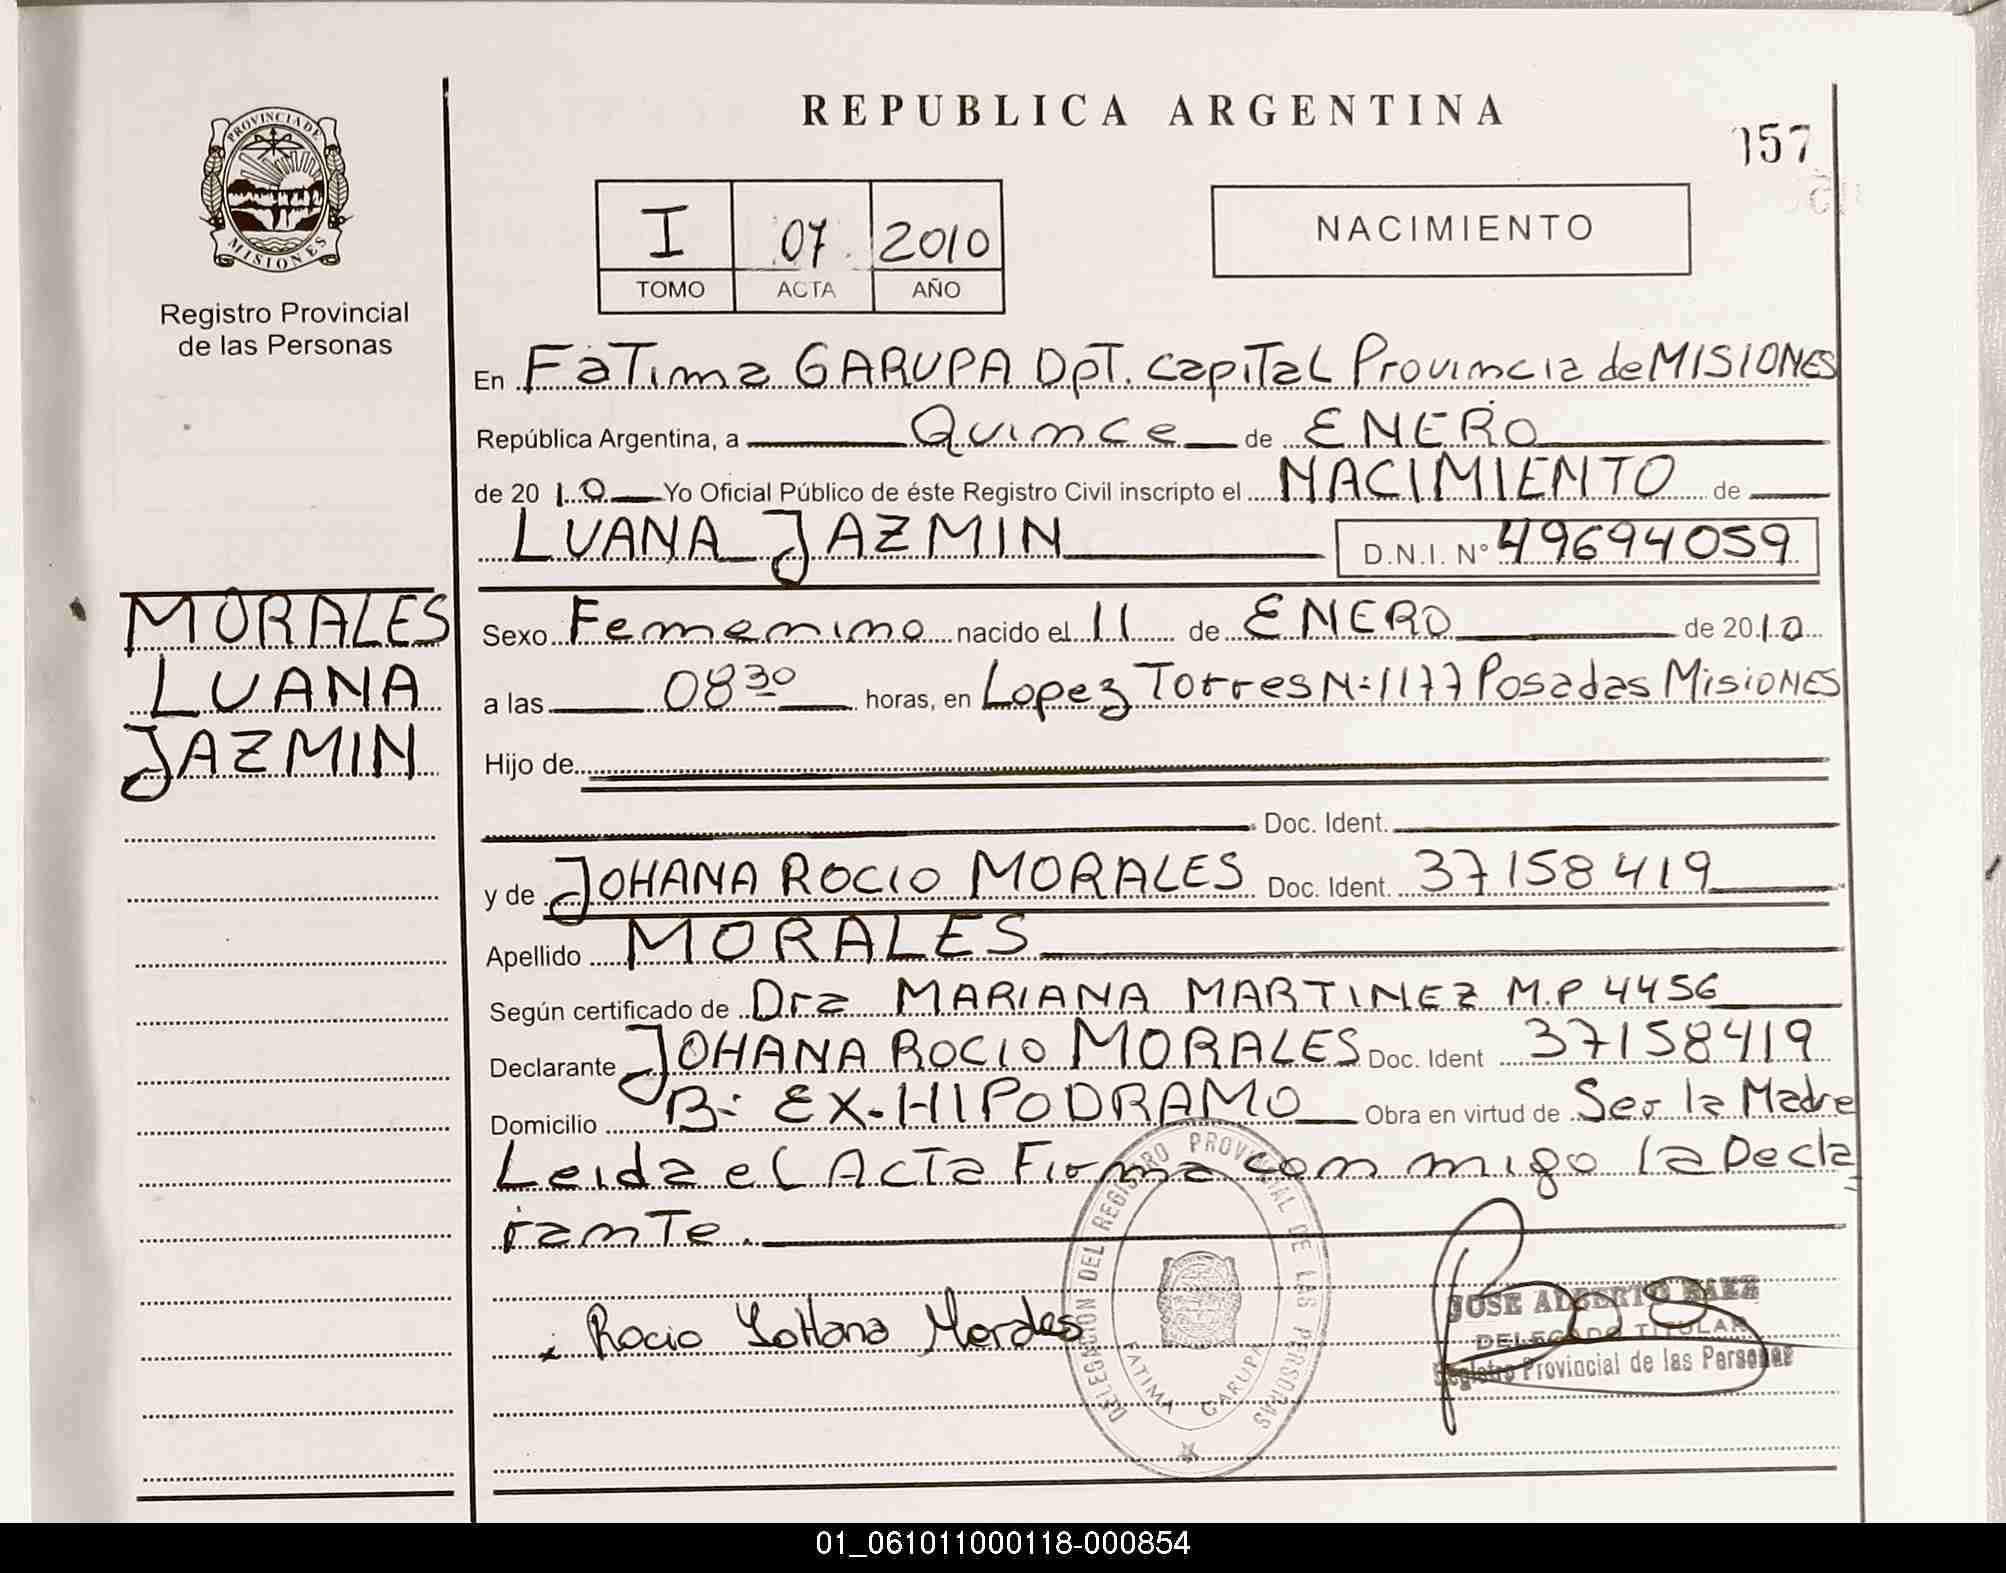 REPUBLICA ARGENTINA
157
PROVINCIA DE MISIONES
Registro Provincial
de las Personas
I 07 2010
TOMO ACTA AÑO
NACIMIENTO
En FaTima GARUPA DpT. capiTaL Provincia de MISIONES
República Argentina, a Quince de ENERO
de 2010 Yo Oficial Público de éste Registro Civil inscripto el NACIMIENTO de
LUANA JAZMIN D.N.I. N° 49694059
MORALES
LUANA
JAZMIN
Sexo Femenino nacido el 11 de ENERO de 2010
a las 08 30 horas, en Lopez Torres N: 1177 Posadas MisioNES
Hijo de
Doc. Ident.
y de JOHANA ROCIO MORALES Doc. Ident. 37158419
Apellido MORALES
Según certificado de Dra MARIANA MARTINEZ M.P 4456
Declarante JOHANA ROCIO MORALES Doc. Ident 37158419
Domicilio B: EX-HIPODRAMO Obra en virtud de Ser la Madre
Leida el ActA Firma con migo la Decla
ranTe.
DELEGACION DEL REGISTRO PROVINCIAL DE LAS PERSONAS
FATIMA GARUPA
Rocio YoHana Morales
JOSE ALBERTO BAEZ
DELEGADO TITULAR
Registro Provincial de las Personas
01_061011000118-000854